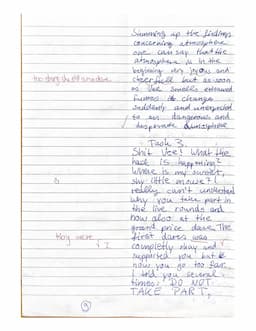 Summing up the findings
concerning atmosphere
one can say that the
atmosphere is in the
beginning very joyous and
cheerfull but as soon
as Vee smells
it changes
suddenly and
to an dangerous and
desperate atmosphere
Task 3.
Shit Vee! What the
heck is happening?
Where is my sweet,
shy little mouse? I
really can't understand
why you take part in
the live rounds and
now also at the
grand price dare. The
They were
first dares was
completly okay and I
supported you but
now you go too far.
I told you several
times: DO NOT
TAKE PART,